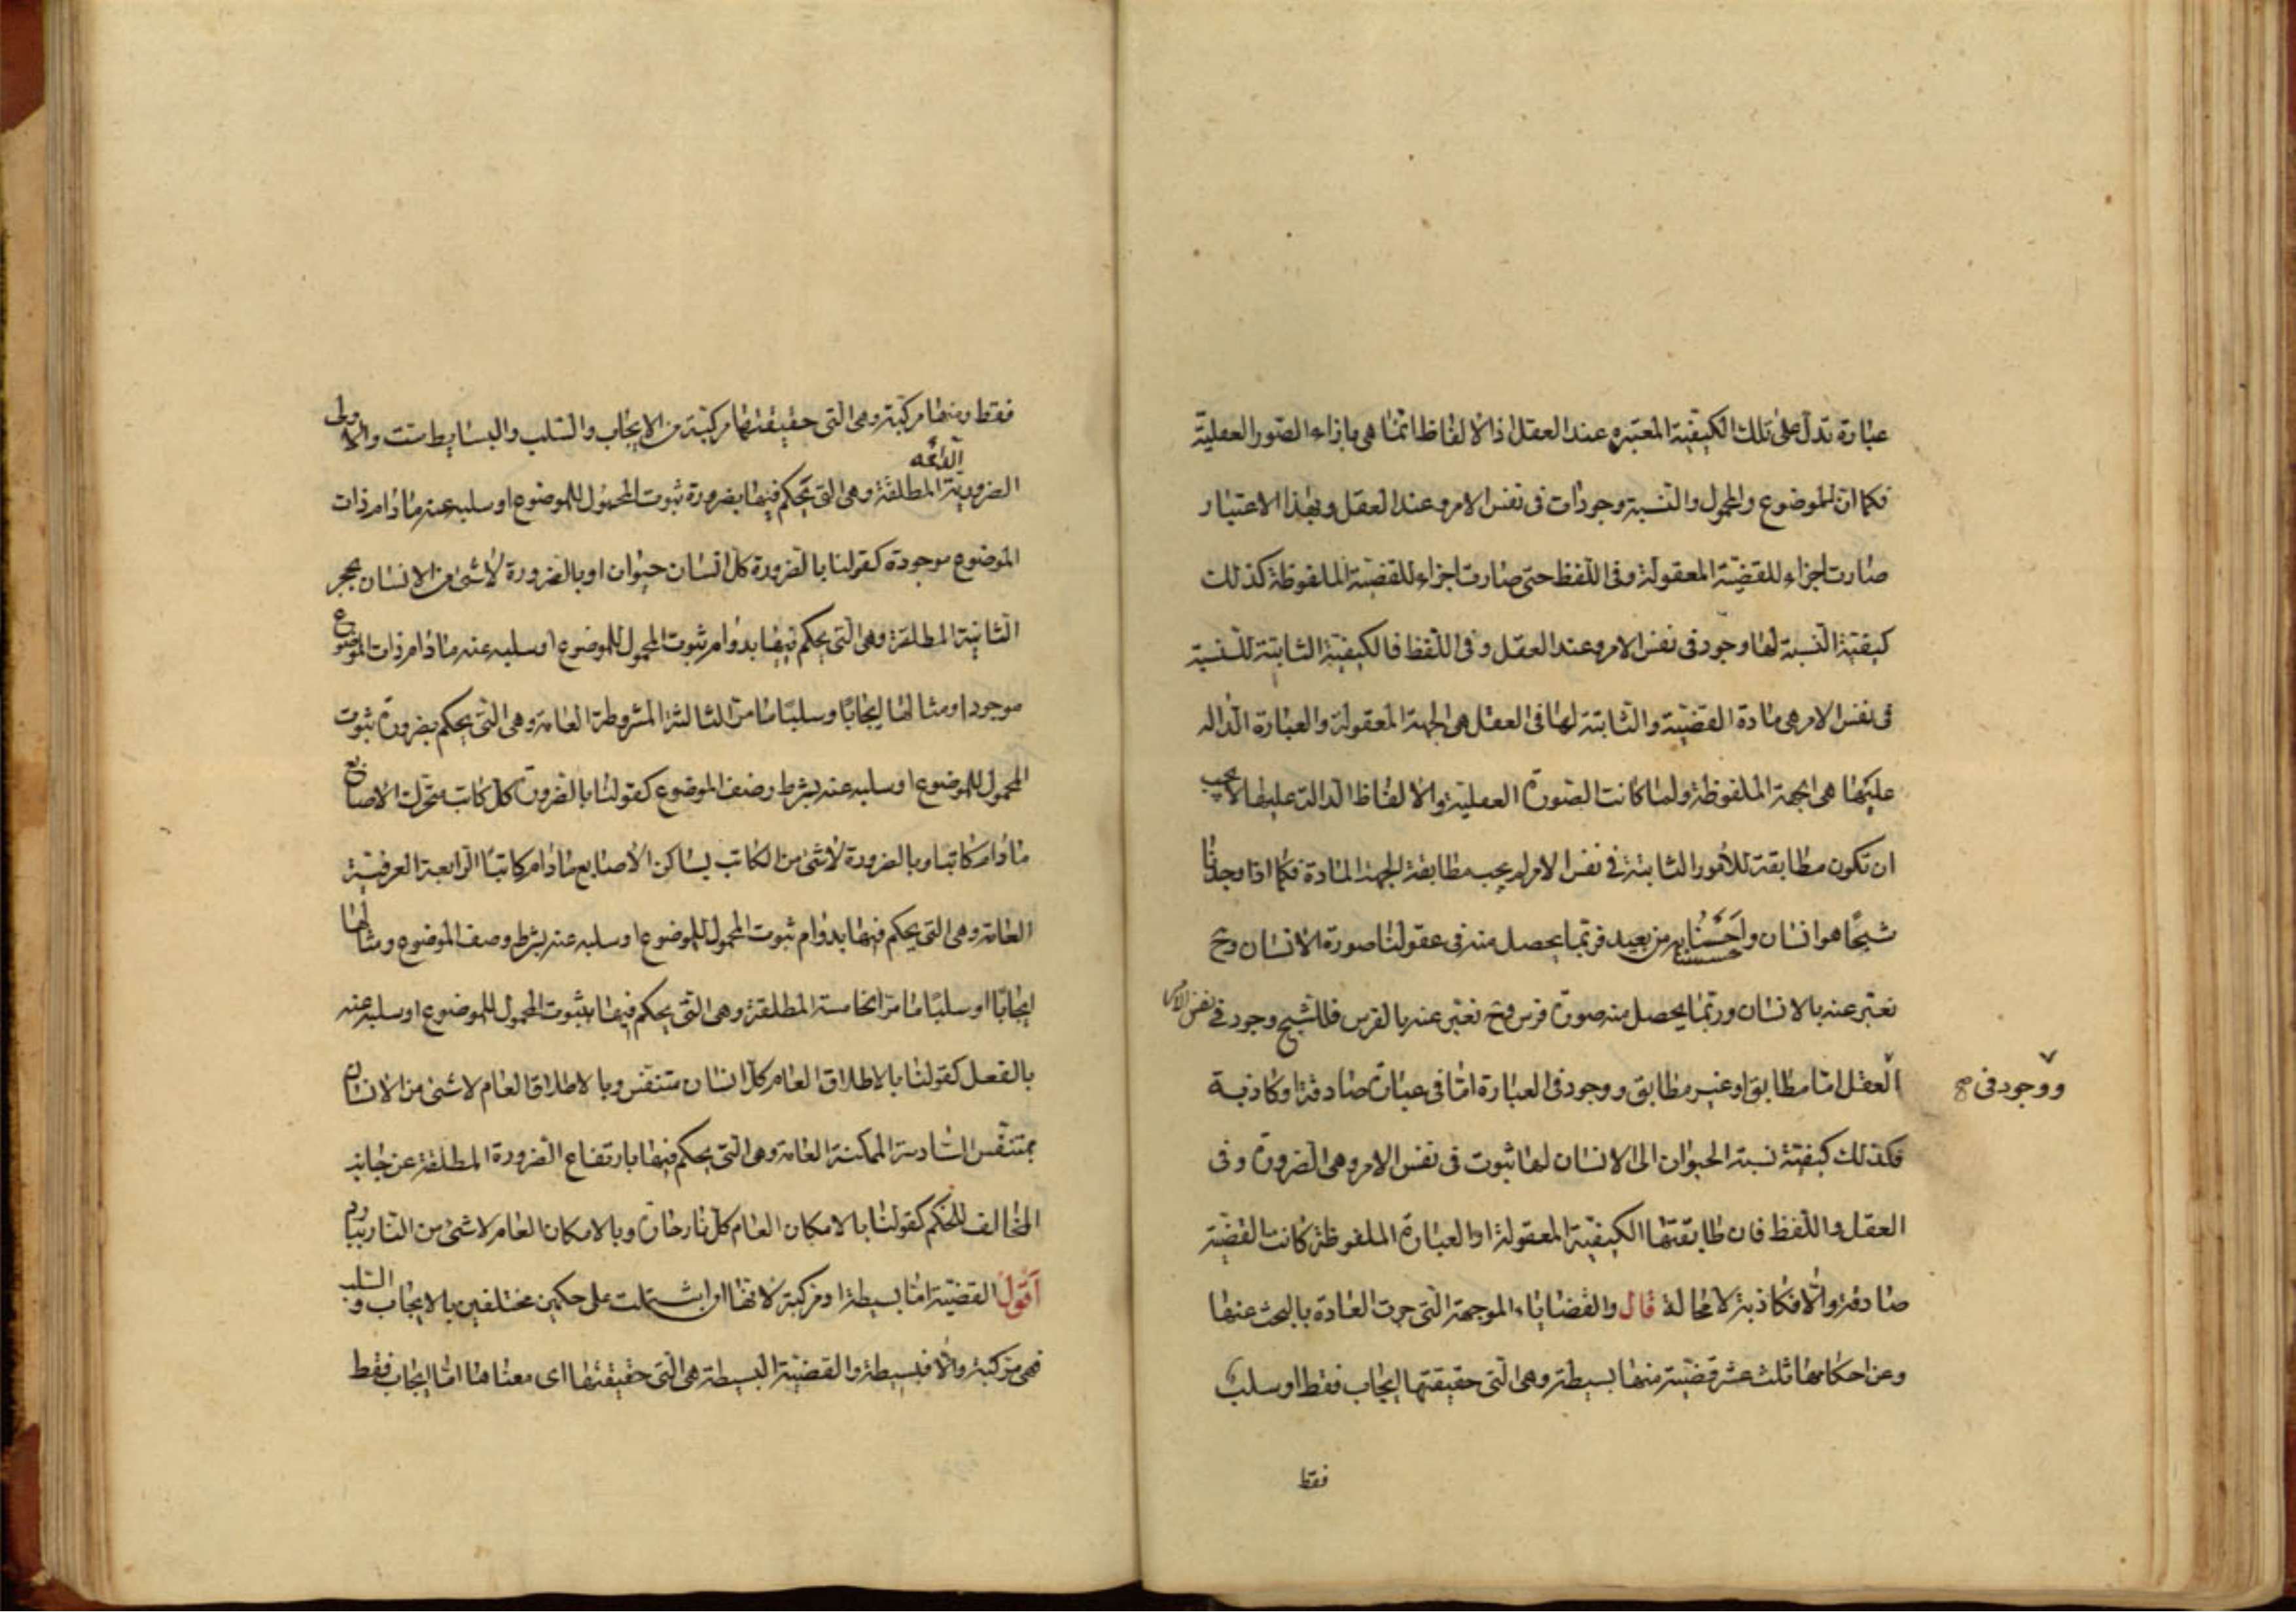 عبارة تدل على تلك الكيفية المعتبره عند العقل اذ الالفاظ انما هى بازاء الصور العقلية
فكما ان للموضوع والمحمول والنسبة وجودات فى نفس الامر وعند العقل وبهذا الاعتبار
صارت اجزاء للقضية المعقولة وفى اللفظ حتى صارت اجزاء للقضية الملفوظة كذلك
كيفية النسبة لها وجود فى نفس الامر وعند العقل وفى اللفظ فالكيفية الثابتة للنسبة
فى نفس الامر هى مادة القضية والثابتة لها فى العقل هى الجهة المعقولة والعبارة الداله
عليها هى الجهة الملفوظة ولما كانت الصورة العقلية والالفاظ الدالة عليها لا يجب
ان تكون مطابقة للامور الثابتة فى نفس الامر لم يجب مطابقة الجهة المادة فكما اذا وجدنا
شبحًا هو انسان واحسسناه من بعيد فربما يحصل منه فى عقولنا صورة الانسان وح
نعبر عنه بالانسان وربما يحصل منه صورة فرس وح نعبر عنه بالفرس فللشبح وجود فى نفس الامر
ووجود فى صح
العقل اما مطابق او غير مطابق ووجود فى العبارة اما فى عبارة صادقة او كاذبة
فكذلك كيفية نسبة الحيوان الى الانسان لها ثبوت فى نفس الامر وهى الضرورة وفى
العقل واللفظ فان طابقتها الكيفية المعقولة او العبارة الملفوظة كانت القضية
صادقة والا فكاذبة لا محالة قال والقضاياء الموجهة التى جرت العادة بالبحث عنها
وعن احكامها ثلث عشر قضية منها بسيطة وهى التى حقيقتها ايجاب فقط او سلب
فقط
فقط ومنها مركبة وهى التى حقيقتها مركبة من الايجاب والسلب والبسايط ست والاولى
الدائمه
الضرورية المطلقة وهى التى يحكم فيها بضرورة ثبوت المحمول للموضوع او سلبه عنه ما دام ذات
الموضوع موجودة كقولنا بالضرورة كل انسان حيوان او بالضرورة لا شئ من الانسان بحجر
الثانية المطلقة وهى التى يحكم فيها بدوام ثبوت المحمول للموضوع او سلبه عنه ما دام ذات الموضوع
موجودا ومثالها ايجابًا وسلبًا ما مر الثالثة المشروطة العامة وهى التى يحكم بضرورة ثبوت
المحمول للموضوع او سلبه عنه بشرط وصف الموضوع كقولنا بالضرورة كل كاتب متحرك الاصابع
ما دام كاتبا وبالضرورة لا شئ من الكاتب بساكن الاصابع ما دام كاتبًا الرابعة العرفية
العامة وهى التى يحكم فيها بدوام ثبوت المحمول للموضوع او سلبه عنه بشرط وصف الموضوع ومثالها
ايجابًا او سلبًا ما مر الخامسة المطلقة وهى التى يحكم فيها بثبوت المحمول للموضوع او سلبه عنه
بالفعل كقولنا بالاطلاق العام كل انسان متنفس وبالاطلاق العام لا شئ من الانسان
بمتنفس السادسة الممكنة العامة وهى التى يحكم فيها بارتفاع الضرورة المطلقة عن جانب
المخالف للحكم كقولنا بالامكان العام كل نار حارة وبالامكان العام لا شئ من النار ببارد
اقول القضية اما بسيطة او مركبة لانها ان اشتملت على حكمين مختلفين بالايجاب والسلب
فهى مركبة والا فبسيطة والقضية البسيطة هى التى حقيقتها اى معناها اما ايجاب فقط